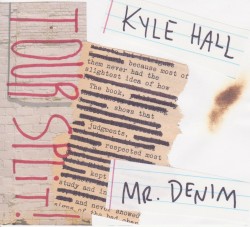 TOUR SPLIT!
KYLE HALL
because most of
them never had the
slightest idea of how
The book,
shows that
judgments,
respected most
kept
study and in
and never showed
MR. DENIM